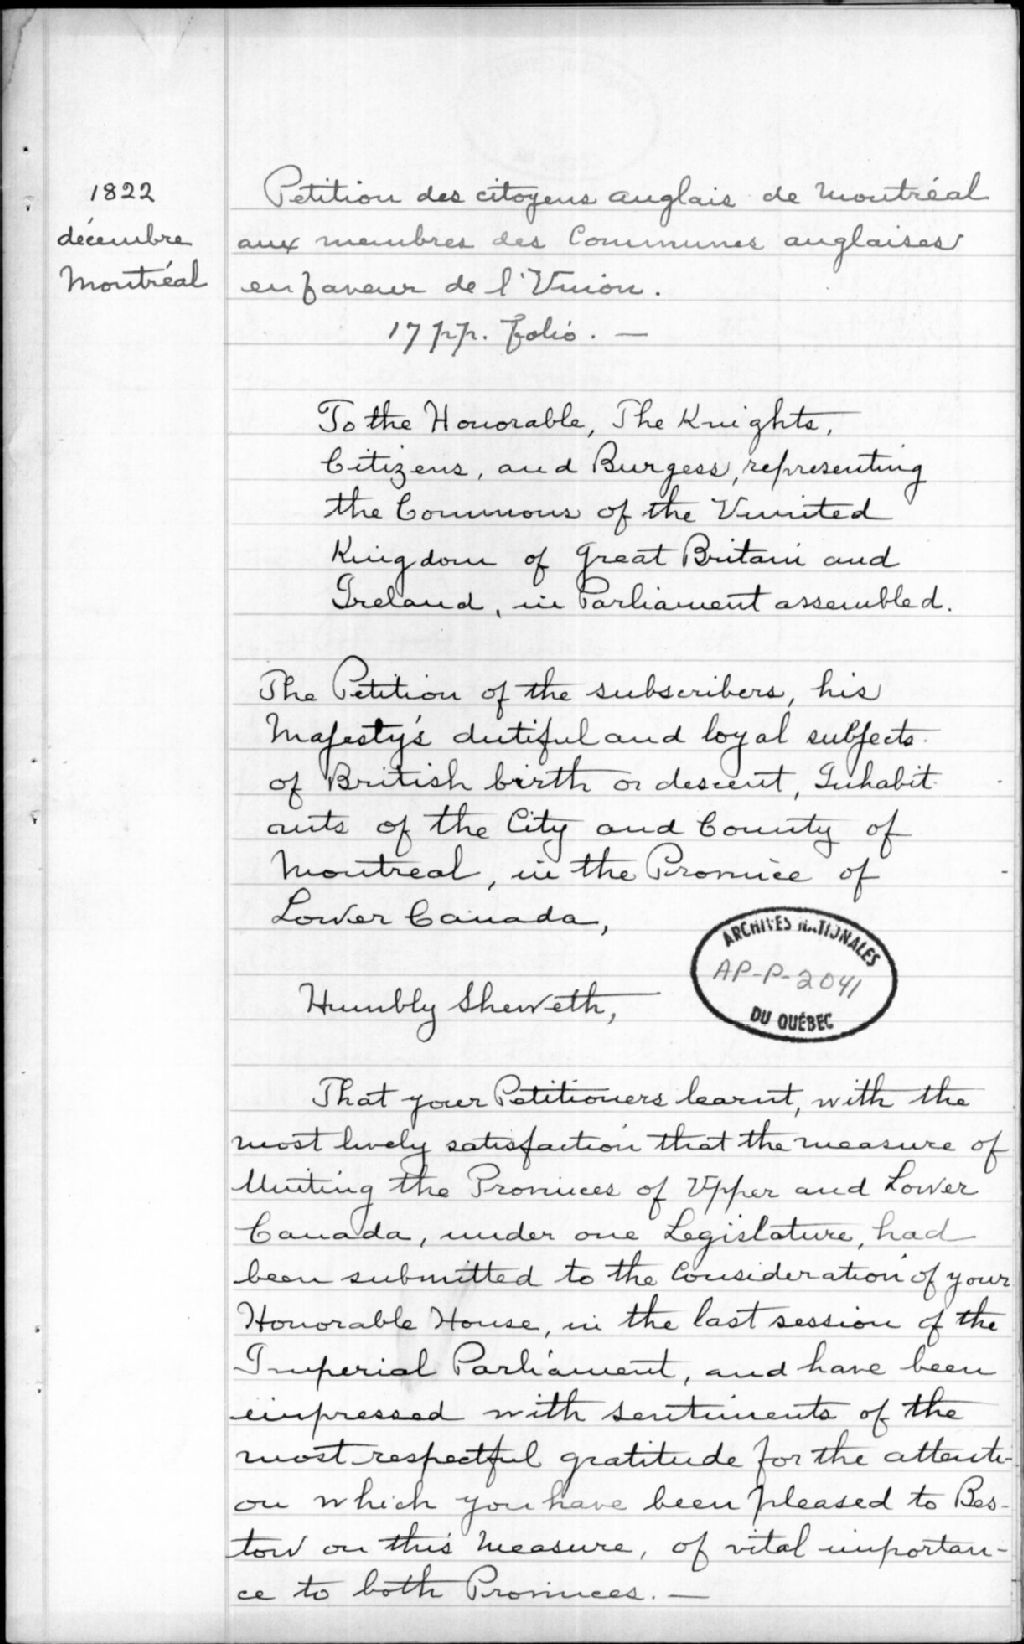 1822
décembre
Montréal
Petition des citoyens anglais de Montréal
aux membres des Communes anglaises
en faveur de l'Union.
17 pp. folio. —
To the Honorable, The Knights,
Citizens, and Burgess, representing
the Commons of the Uunited
Kingdom of Great Britain and
Ireland, in Parliament assembled.
The Petition of the subscribers, his
Majesty's dutiful and loyal subjects
of British birth or descent, Inhabit
ants of the City and County of
Montreal, in the Province of
Lower Canada,
ARCHIVES NATIONALES
AP-P-2041
DU QUÉBEC
Humbly Sheweth,
That your Petitioners learnt, with the
most lively satisfaction that the measure of
Uniting the Provinces of Upper and Lower
Canada, under one Legislature, had
been submitted to the Consideration of your
Honorable House, in the last session of the
Imperial Parliament, and have been
impressed with sentiments of the
most respectful gratitude for the attenti-
on which you have been pleased to Bes-
tow on this Measure, of vital importan-
ce to both Provinces. —